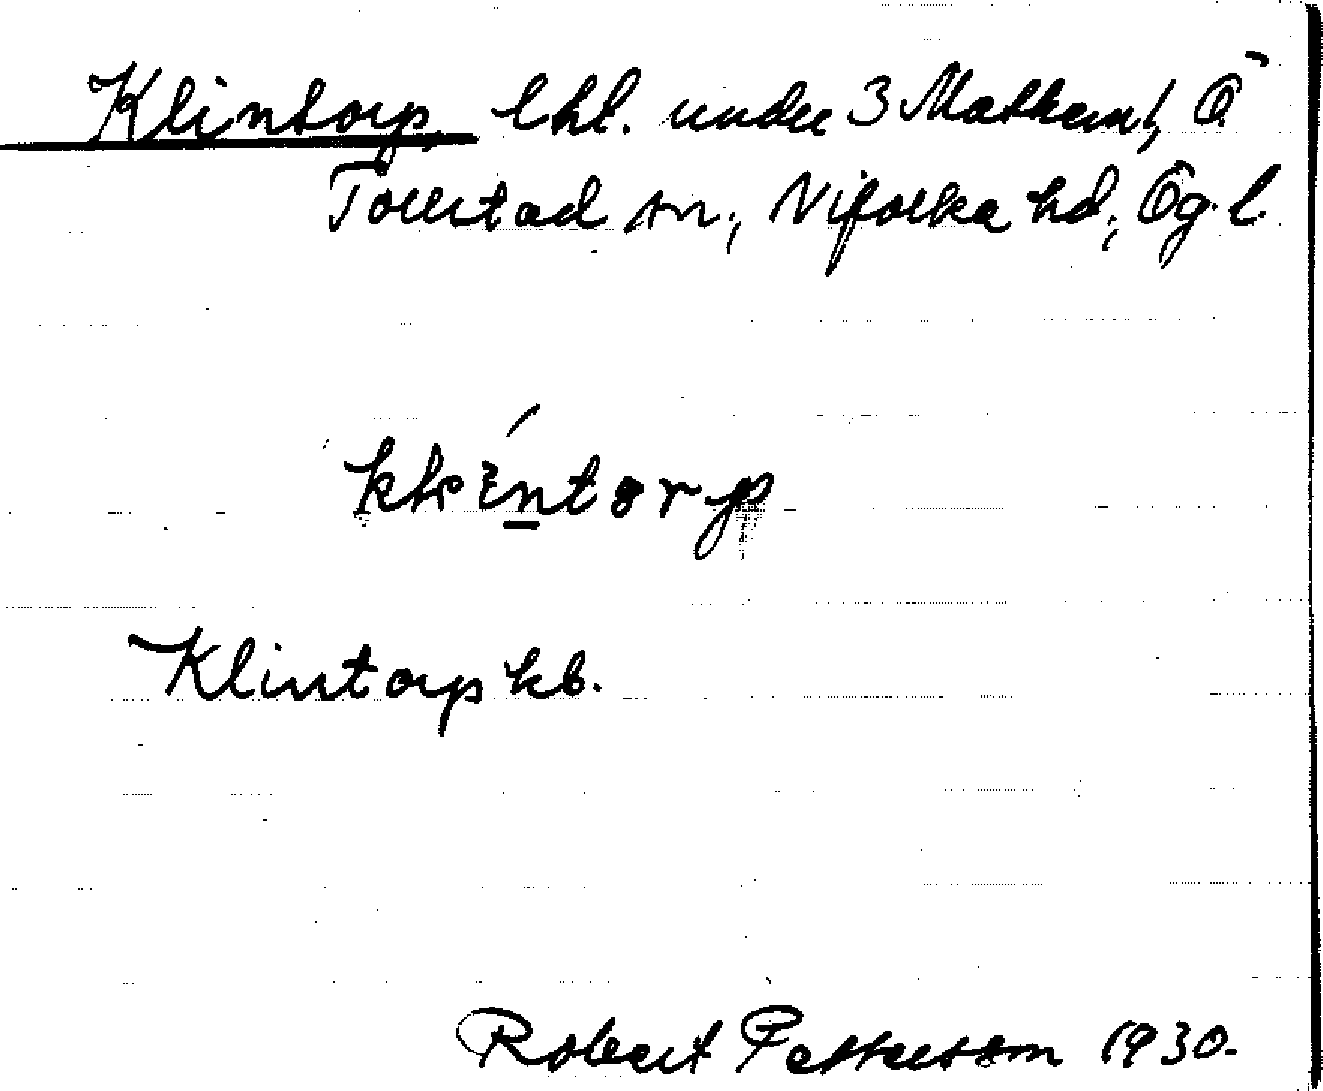 Klintorp, lht. under 3 Mathem!, Ö
Tollstad sn., Vifolka hd., Ög. l.
Klintorp kb.
Robert Pettersson 1930.